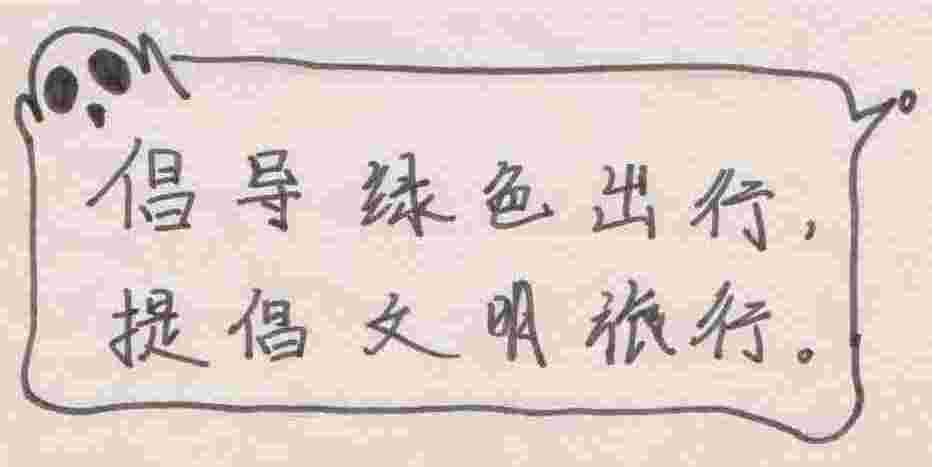 倡导绿色出行,
提倡文明旅行。